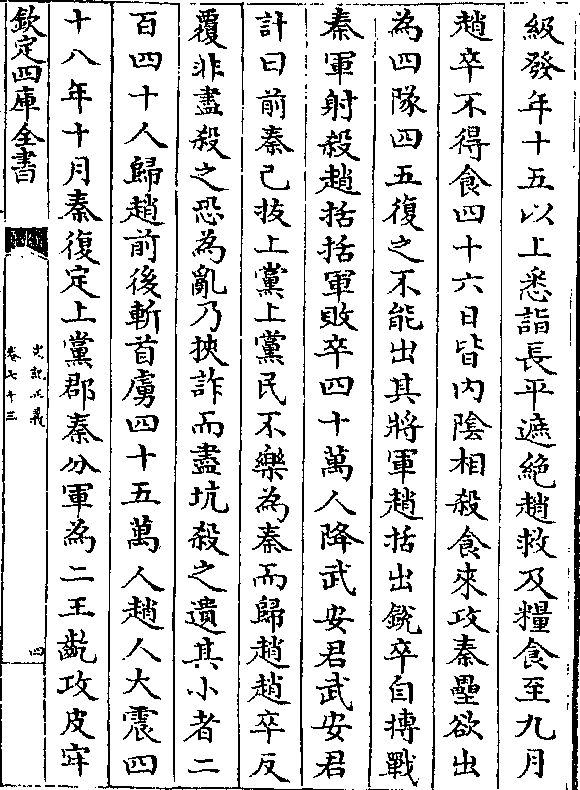 級發年十五以上悉詣長平遮絶趙救及糧食至九月
趙卒不得食四十六日皆内陰相殺食來攻秦壘欲出
為四隊四五復之不能出其將軍趙括出銳卒自搏戰
秦軍射殺趙括括軍敗卒四十萬人降武安君武安君
計曰前秦已拔上黨上黨民不樂為秦而歸趙趙卒反
覆非盡殺之恐為亂乃挾詐而盡坑殺之遺其小者二
百四十人歸趙前後斬首虜四十五萬人趙人大震四
十八年十月秦復定上黨郡秦分軍為二王齕攻皮牢
欽定四庫全書
史記正義
卷七十三
四